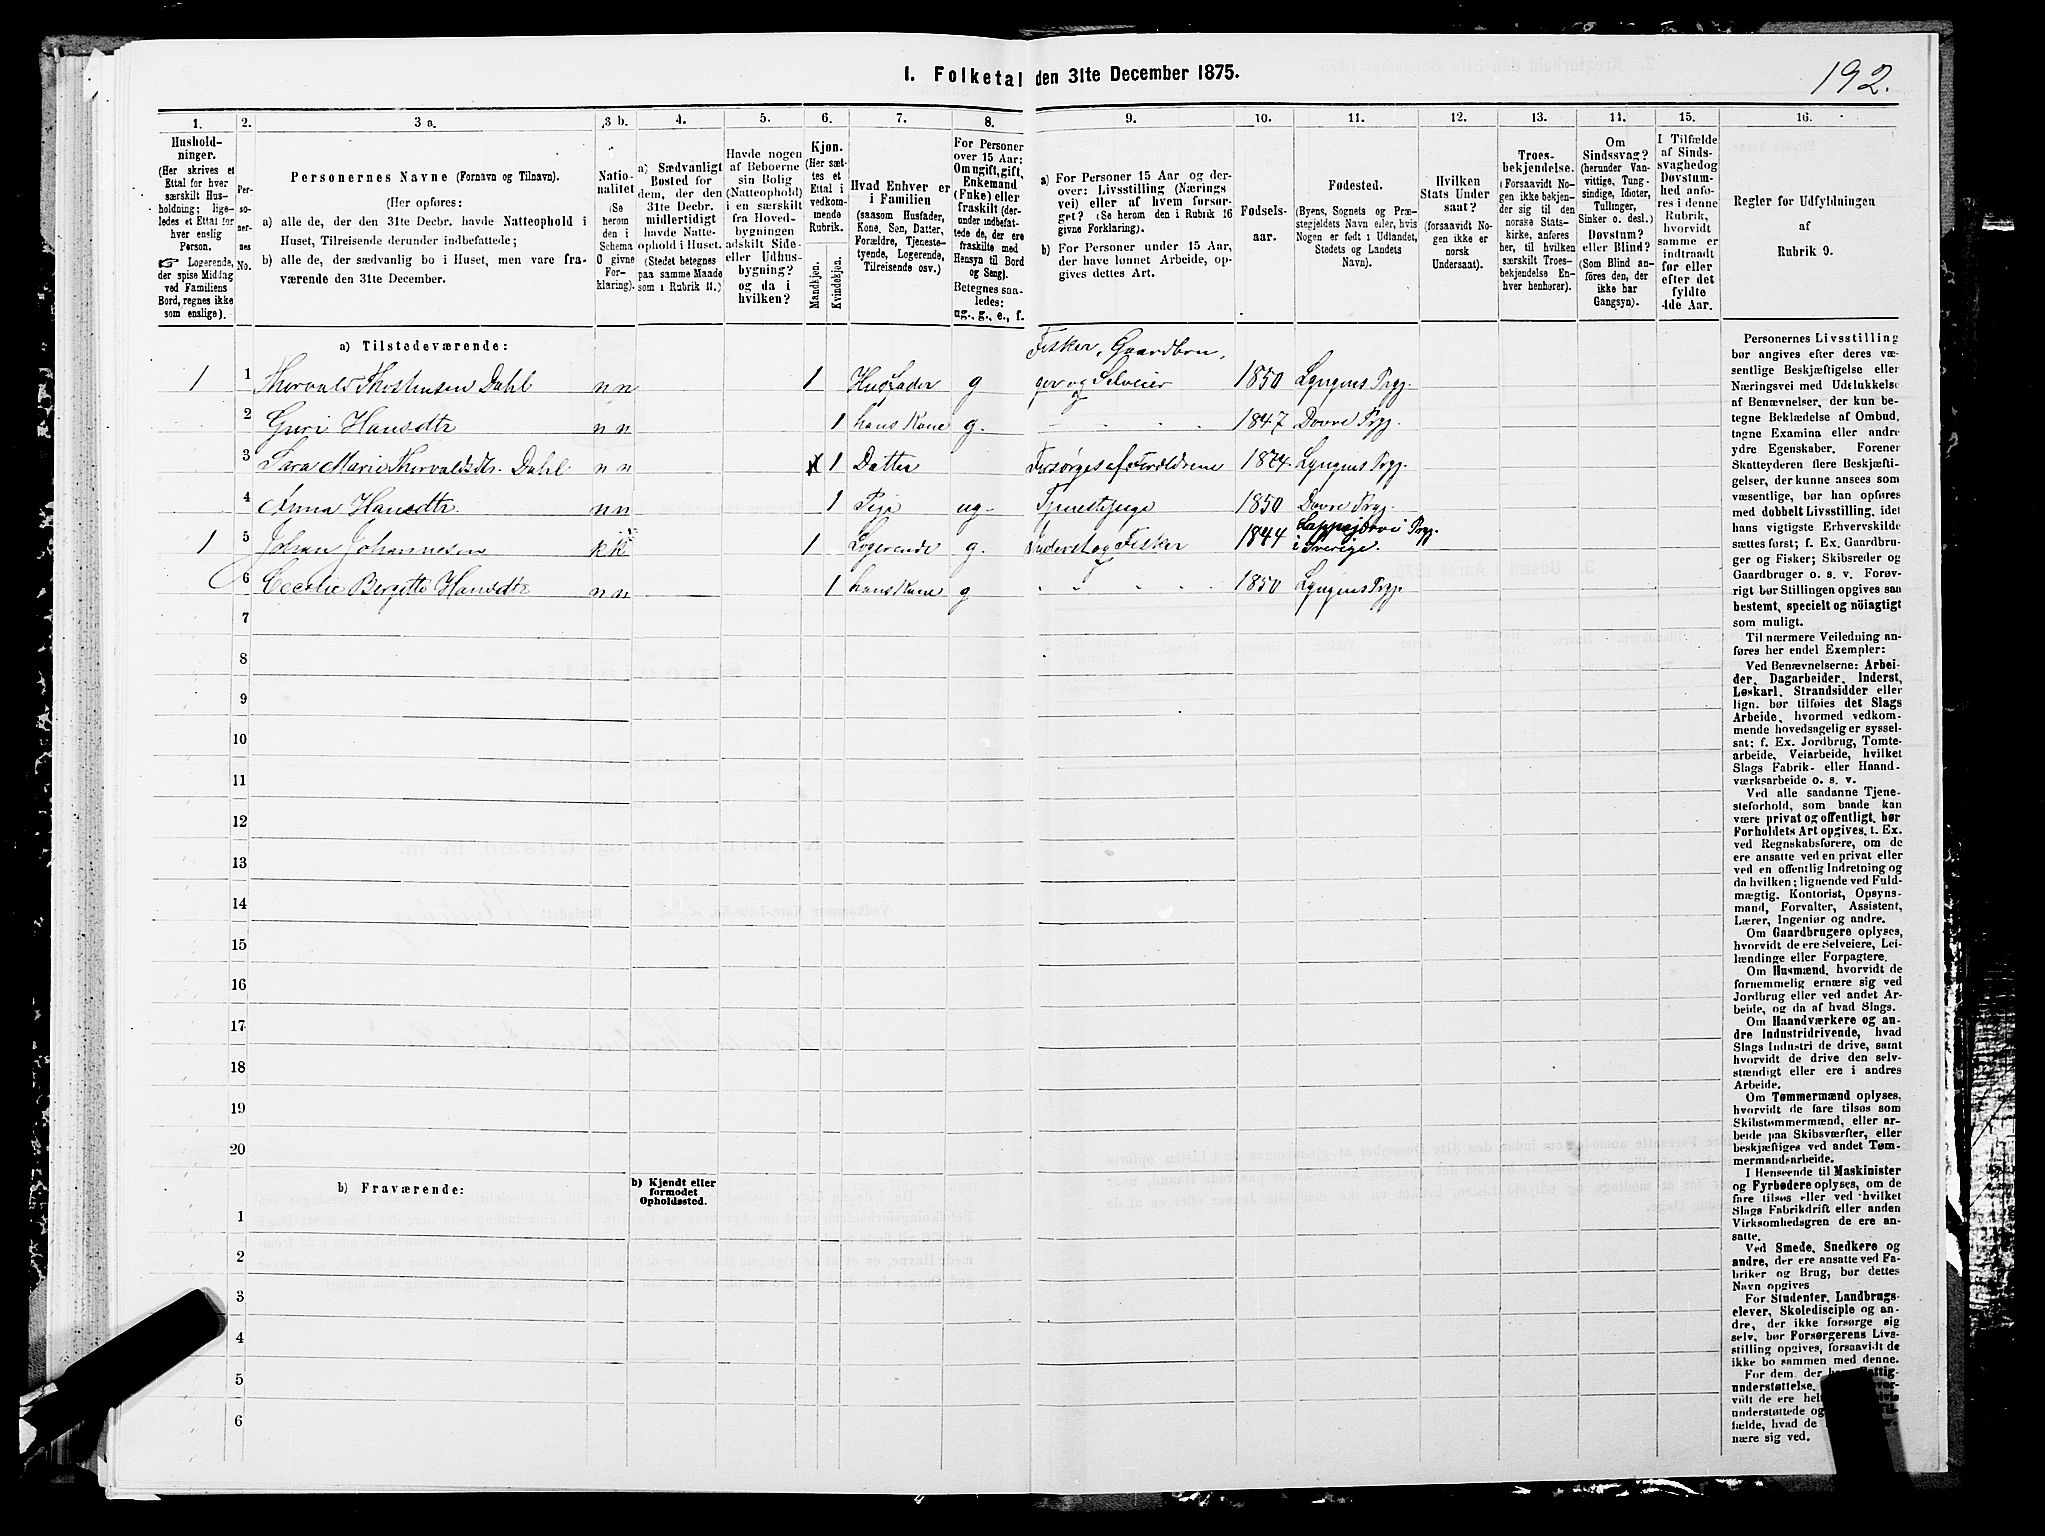 I. Folketal den 31te December 1875.
192.
1.
Hushold-
ninger.
(Her skrives et
Ettal for hver
særskilt Hus-
holdning; lige-
ledes et Ettal for
hver enslig
Person.
☞ Logerende,
der spise Middag
ved Familiens
Bord, regnes ikke
som enslige).
2.
Per-
so-
ner-
nes
No.
3 a.
Personernes Navne (Fornavn og Tilnavn).
(Her opføres:
a) alle de, der den 31te Decbr. havde Natteophold i
Huset, Tilreisende derunder indbefattede;
b) alle de, der sædvanlig bo i Huset, men vare fra-
værende den 31te December.
3 b.
Natio-
nalitet
(Se
herom
den i
Schema
O givne
For-
klaring).
4.
a) Sædvanligt
Bosted for
dem, der den
31te Decbr.
midlertidigt
havde Natte-
ophold i Huset.
(Stedet betegnes
paa samme Maade
som i Rubrik 11.)
5.
Havde nogen
af Beboerne
sin Bolig
(Natteophold)
i en særskilt
fra Hoved-
bygningen
adskilt Side-
eller Udhus-
bygning?
og da i
hvilken?
6.
Kjøn.
(Her sæt-
tes et
Ettal i
vedkom-
mende
Rubrik.
Mandkjøn.
Kvindekjøn.
7.
Hvad Enhver er
i Familien
(saasom Husfader,
Kone, Søn, Datter,
Forældre, Tjeneste-
tyende, Logerende,
Tilreisende osv.)
8.
For Personer
over 15 Aar:
Om ugift, gift,
Enkemand
(Enke) eller
fraskilt (der-
under indbefat-
tede de, der ere
fraskilte med
Hensyn til Bord
og Seng).
Betegnes saa-
ledes:
ug., g., e., f.
9.
a) For Personer 15 Aar og der-
over: Livsstilling (Nærings
vei) eller af hvem forsør-
get? (Se herom den i Rubrik 16
givne Forklaring).
b) For Personer under 15 Aar,
der have lønnet Arbeide, op-
gives dettes Art.
10.
Fødsels-
aar.
11.
Fødested.
(Byens, Sognets og Præ-
stegjeldets Navn eller, hvis
Nogen er født i Udlandet,
Stedets og Landets
Navn).
12.
Hvilken
Stats Under
saat?
(forsaavidt No-
gen ikke er
norsk
Undersaat).
13.
Troes-
bekjendelse.
(Forsaavidt No-
gen ikke bekjen-
der sig til den
norske Stats-
kirke, anføres
her, til hvilken
særskilt Troes-
bekjendelse En-
hver henhører).
14.
Om
Sindssvag?
(herunder Van-
vittige, Tung-
sindige, Idioter,
Tullinger,
Sinker o. desl.)
Døvstum?
eller Blind?
(Som Blind an-
føres den, der
ikke har
Gangsyn).
15.
I Tilfælde
af Sinds-
svaghed og
Døvstum-
hed anfø-
res i denne
Rubrik,
hvorvidt
samme er
indtraadt
før eller
efter det
fyldte
4de Aar.
16.
Regler for Udfyldningen
af
Rubrik 9.
a) Tilstedeværende:
Fisker, Gaardbru-
1 1 Thorvald Thostensen Dahl n n 1 Husfader g ger og Selveier 1850 Lyngens Prgj.
2 Guri Hansdtr n n 1 hans Kone g. 1847 Dovre Prgj.
3 Sara Marie Thorvaldsdtr. Dahl n n 1 Datter Forsørges af Forældrene 1874 Lyngens Prgj.
4 Anna Hansdtr n n 1 Pige ug Tjenestepige 1850 Dovre Prgj.
1 5 Johan Johannesen k k 1 Logerende g. Inderst og Fisker 1844 Prgj. i Sverige.
6 Cecelie Bergitte Hansdtr n n 1 hans Kone g 1850 Lyngens Prgj.
7
8
9
10
11
12
13
14
15
16
17
18
19
20
b) Fraværende:
b) Kjendt eller
formodet
Opholdssted.
1
2
3
4
5
6
Personernes Livsstilling
bør angives efter deres væ-
sentlige Beskjæftigelse eller
Næringsvei med Udelukkelse
af Benævnelser, der kun be-
tegne Beklædelse af Ombud,
tagne Examina eller andre
ydre Egenskaber. Forener
Skatteyderen flere Beskjæfti-
gelser, der kunne ansees som
væsentlige, bør han opføres
med dobbelt Livsstilling, idet
hans vigtigste Erhvervskilde
sættes først; f. Ex. Gaardbru-
ger og Fisker; Skibsreder og
Gaardbruger o. s. v. Forøv-
rigt bør Stillingen opgives saa
bestemt, specielt og nöiagtigt
som muligt.
Til nærmere Veiledning an-
føres her endel Exempler:
Ved Benævnelserne: Arbei-
der, Dagarbeider, Inderst,
Løskarl, Strandsidder eller
lign. bør tilføies det Slags
Arbeide, hvormed vedkom-
mende hovedsagelig er syssel-
sat; f. Ex. Jordbrug, Tomte-
arbeide, Veiarbeide, hvilket
Slags Fabrik- eller Haand-
værksarbeide o. s. v.
Ved alle saadanne Tjene-
steforhold, som baade kan
være privat og offentligt, bør
Forholdets Art opgives, t. Ex.
ved Regnskabsførere, om de
ere ansatte ved en privat eller
ved en offentlig Indretning og
da hvilken; lignende ved Fuld-
mægtig, Kontorist, Opsyns-
mand, Forvalter, Assistent,
Lærer, Ingeniør og andre.
Om Gaardbrugere oplyses,
hvorvidt de ere Selveiere, Lei-
lændinge eller Forpagtere.
Om Husmænd, hvorvidt de
fornemmelig ernære sig ved
Jordbrug eller ved andet Ar-
beide, og da af hvad Slags.
Om Haandværkere og an-
dre Industridrivende, hvad
Slags Industri de drive, samt
hvorvidt de drive den selv-
stændigt eller ere i andres
Arbeide.
Om Tømmermænd oplyses,
hvorvidt de fare tilsøs som
Skibstømmermænd, eller ar-
beide paa Skibsværfter, eller
beskjæftiges ved andet Tøm-
mermandsarbeide.
I Henseende til Maskinister
og Fyrbødere oplyses, om de
fare tilsøs eller ved hvilket
Slags Fabrikdrift eller anden
Virksomhedsgren de ere an-
satte.
Ved Smede, Snedkere og
andre, der ere ansatte ved Fa-
briker og Brug, bør dettes
Navn opgives
For Studenter, Landbrugs-
elever, Skoledisciple og an-
dre, der ikke forsørge sig
selv, bør Forsørgerens Livs-
stilling opgives, forsaavidt de
ikke bo sammen med denne.
For dem, der
understøttelse,
vidt de ere
understøttede og
fælde, hvad de
nære sig ved.